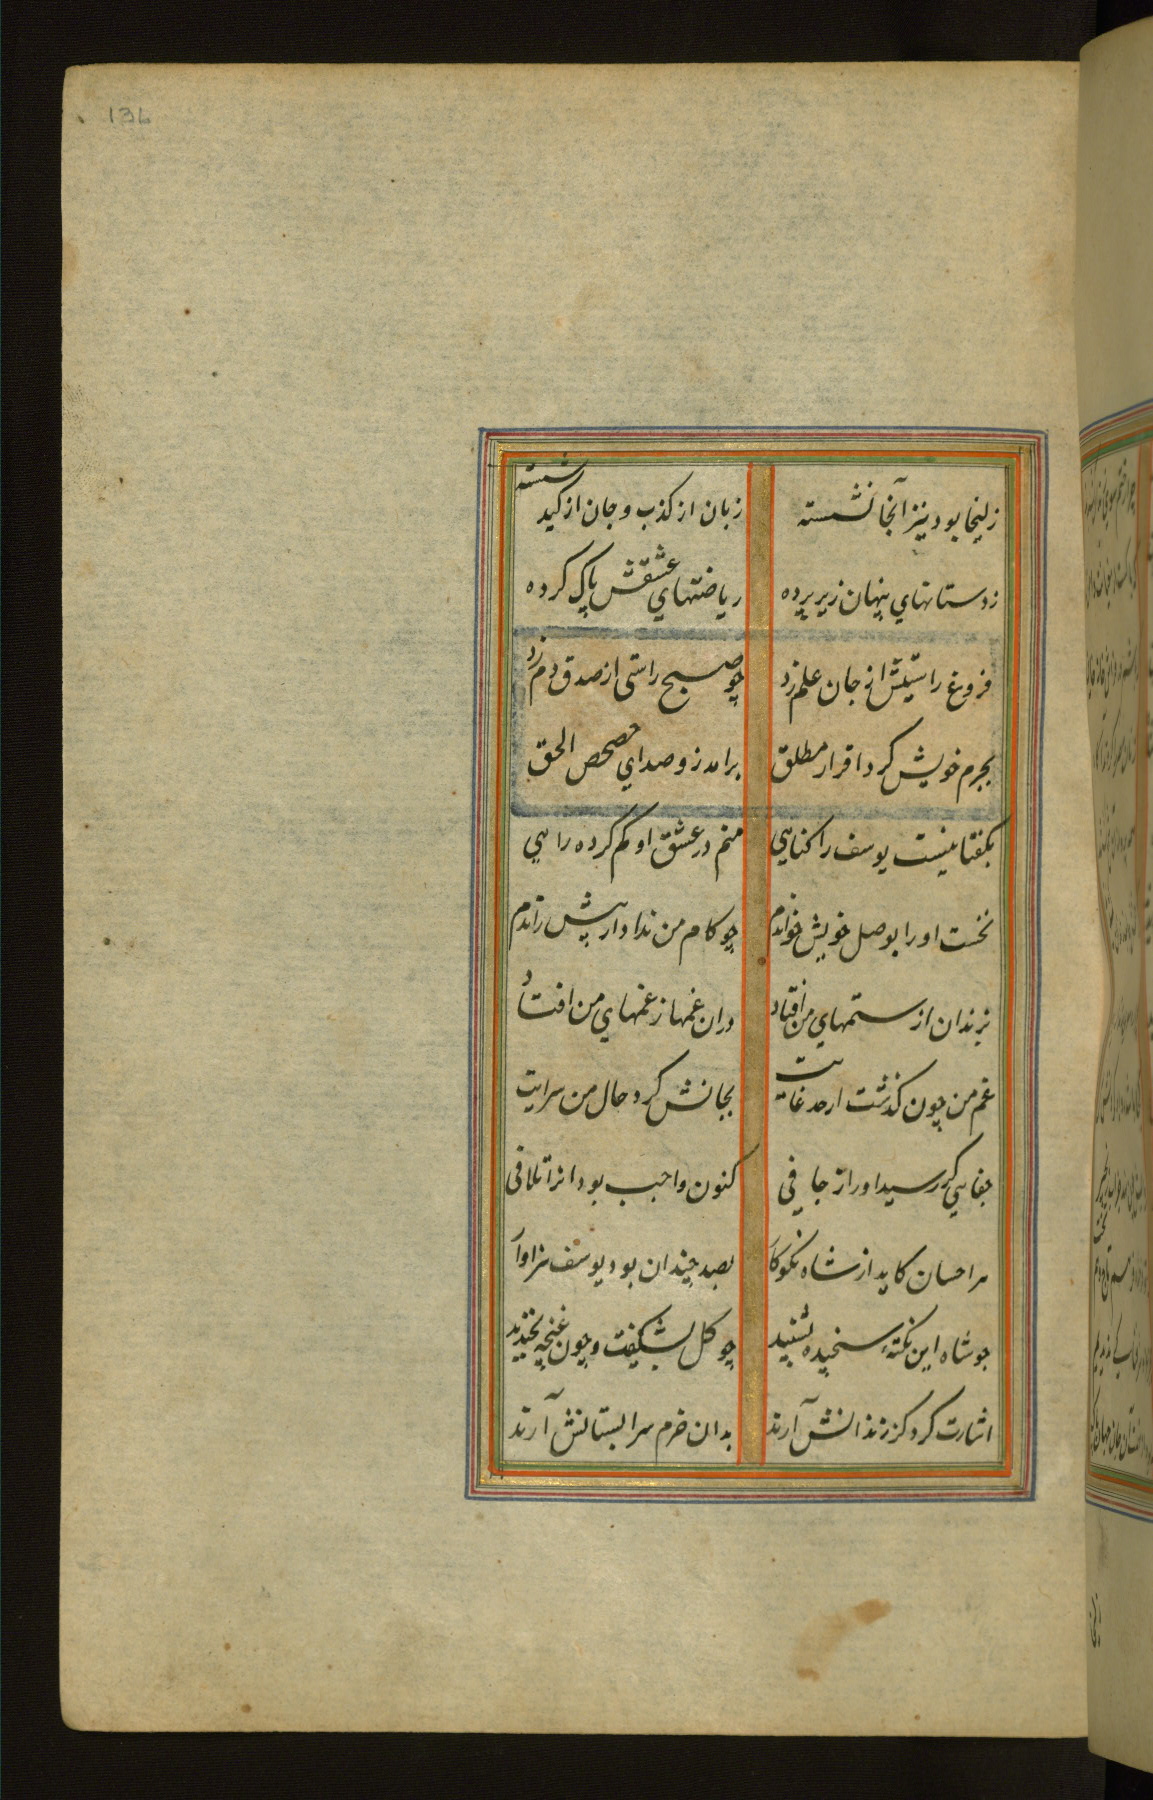 136
زلیخا بود نیز آنجا نشسته زبان از کذب و جان از کید شسته
زدستانهای پنهان زیر پرده ریاضتهای عشقش پاک کرده
فروغ راستیش از جان علم زد چو صبح راستی از صدق دم زد
بجرم خویش کرد اقرار مطلق برامد زو صدای حصحص الحق
بکفتا نیست یوسف را کناهی منم در عشق او کم کرده راهی
نخست او را بوصل خویش خواندم چو کام من نداد از پیش راندم
بزندان از ستمهای من افتاد دران غمها ز غمهای من افتاد
غم من چون کذشت از حد غایت بجانش کرد حال من سرایت
جفایی کر رسید او را ز جافی کنون واجب بود انرا تلافی
هر احسان کاید از شاه نکوکار بصد چندان بود یوسف سزاوار
چو شاه این نکتهٔ سنجیده بشنید چو کل بشکفت و چون غنچه بخندید
اشارت کرد کز زندانش آرند بدان خرم سرابستانش آرند